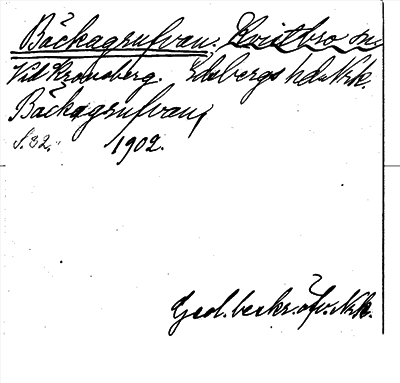 Bäckagrufvan. Kvistbro sn
Vid Kronoberg. Edsbergs hd. Nrk.
Bäckagrufvan,
S. 32. 1902.
Geol. beskr. öfv. Nrk.